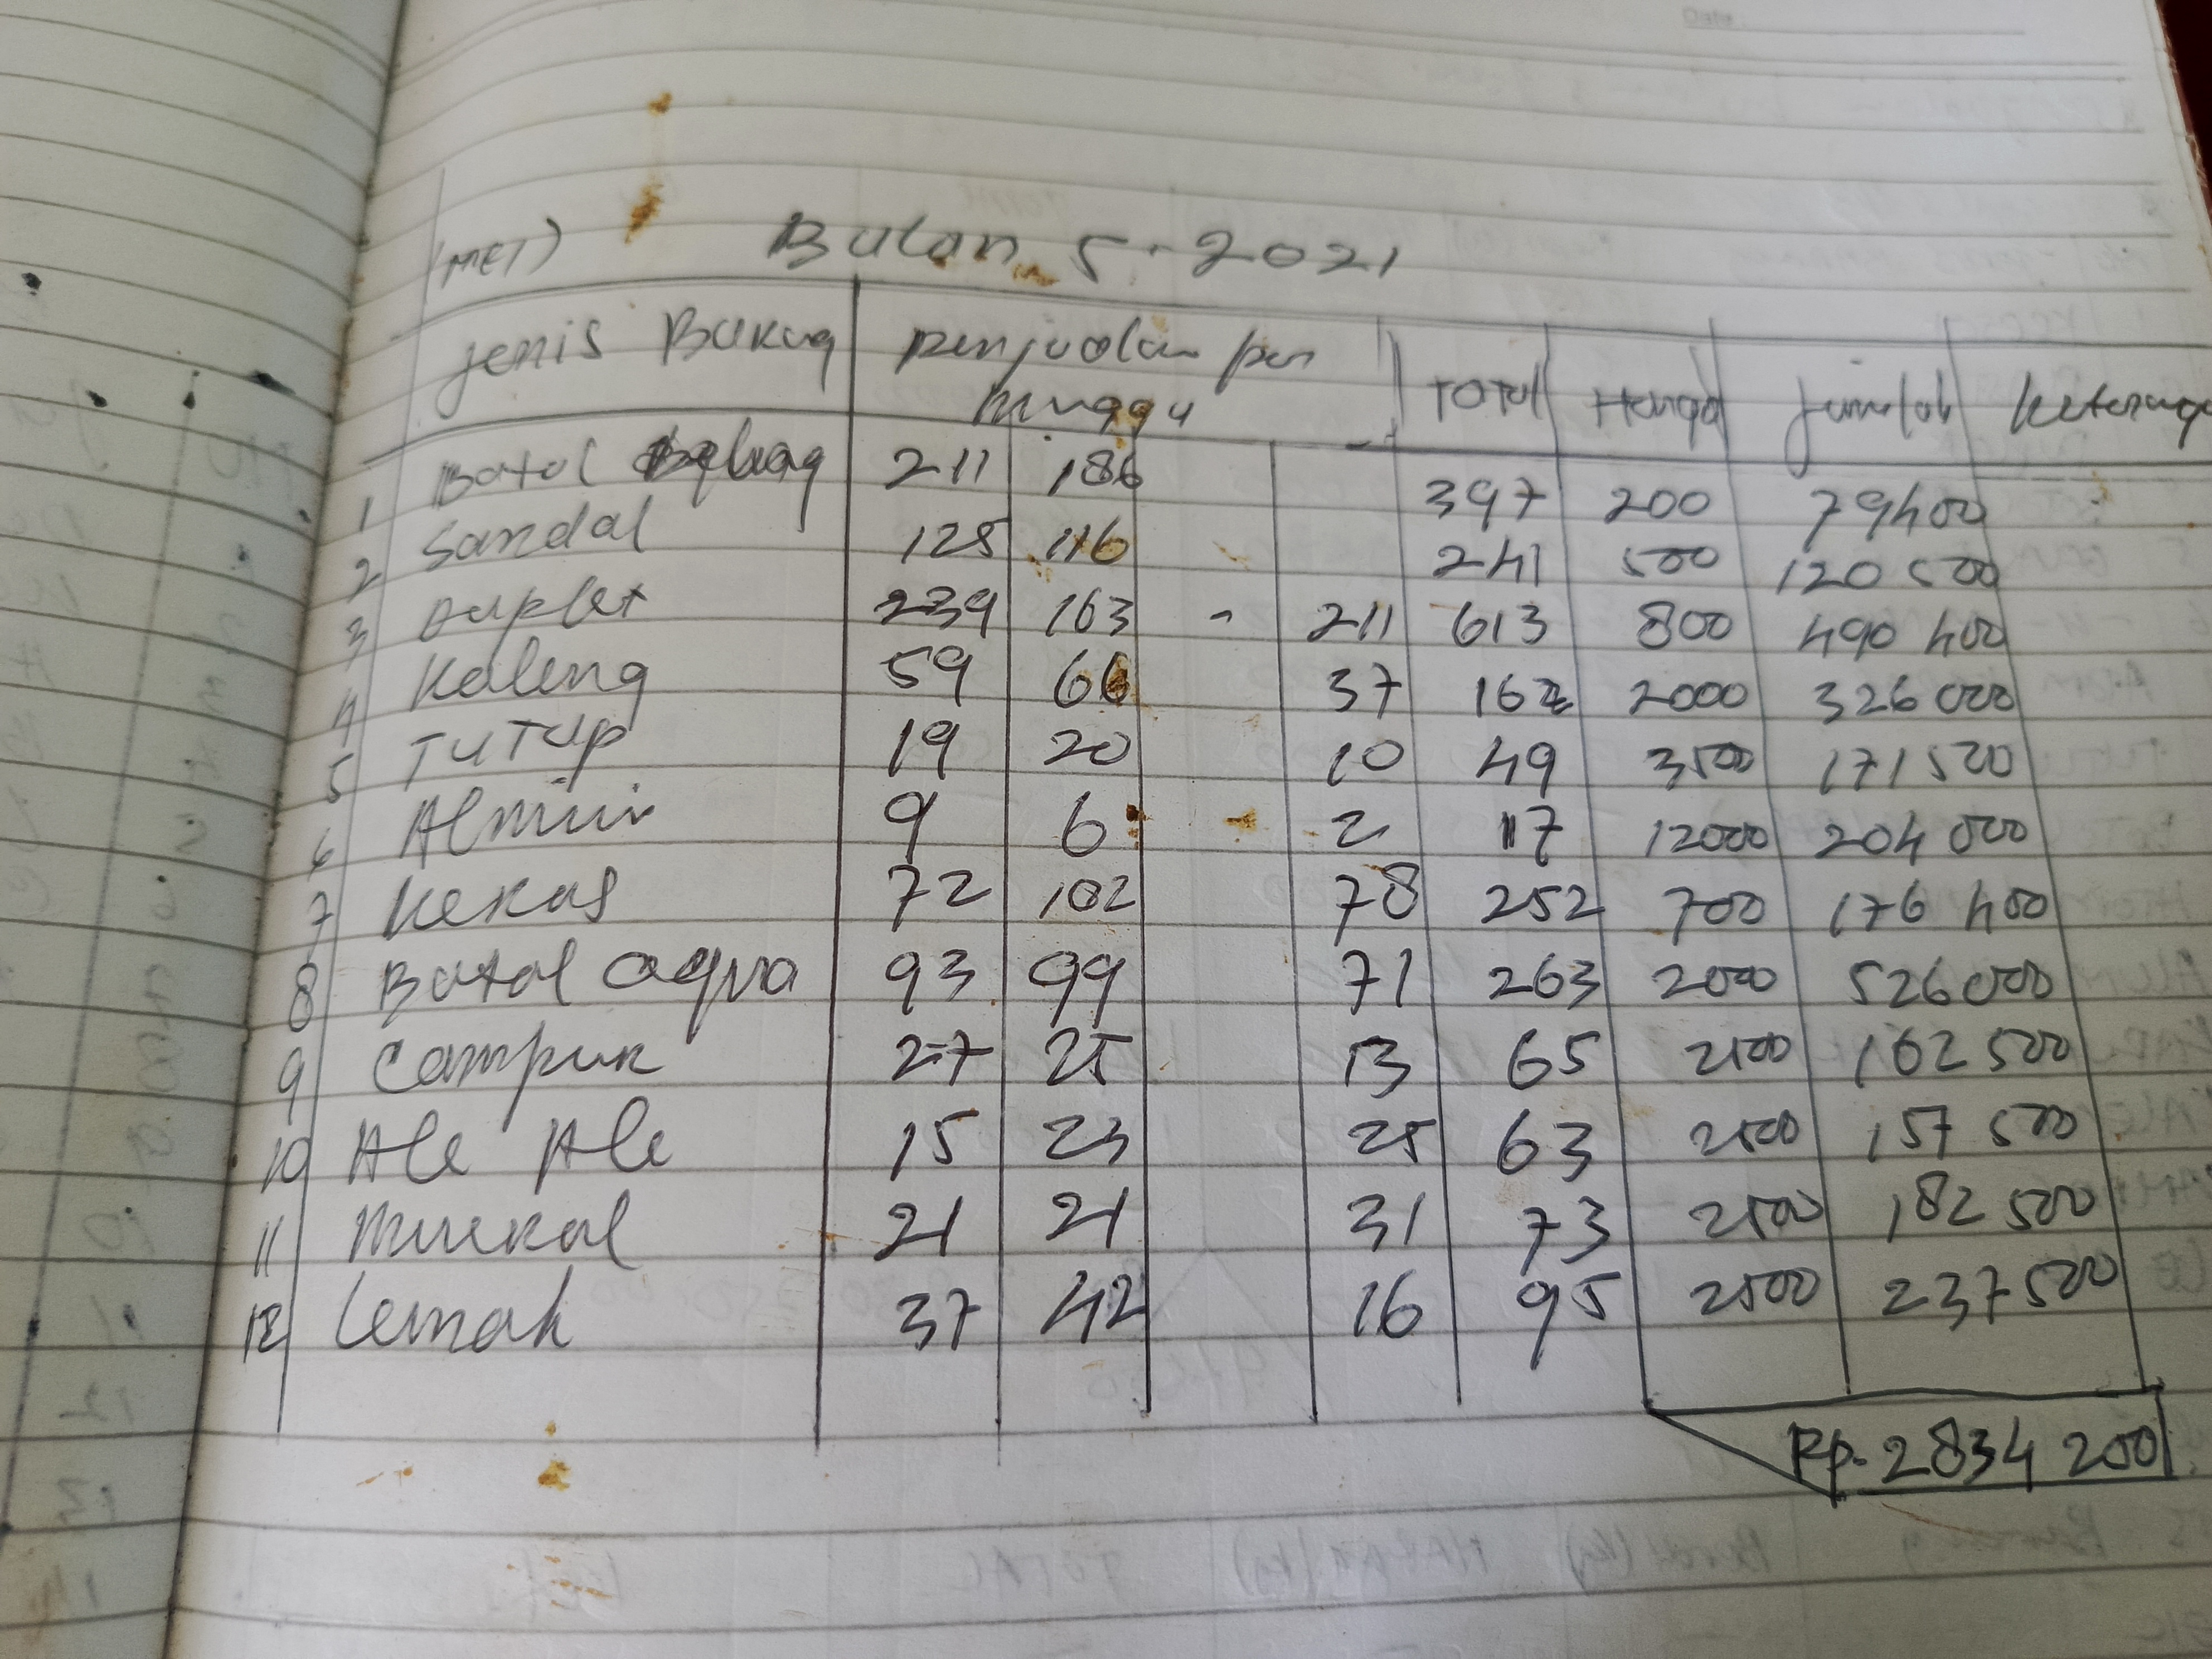 (MEI) Bulan 5 - 2021
Jenis Barang penjualan per Total Harga Jumlah Keterang
minggu
1 Botol 211 186 397 200 79400
2 Sandal 125 116 241 500 120 500
3 Duplet 239 163 - 211 613 800 490 400
4 Kaleng 59 66 37 162 2000 326 000
5 TUTUP 19 20 10 49 3500 171 500
6 9 6 2 17 12000 204 000
7 Keras 72 102 78 252 700 176 400
8 Botol aqua 93 99 71 263 2000 526 000
9 Campur 27 25 13 65 2500 162 500
10 Ale Ale 15 23 25 63 2500 157 500
11 21 21 31 73 2500 182 500
12 Lemah 37 42 16 95 2500 237 500
Rp. 2834 200